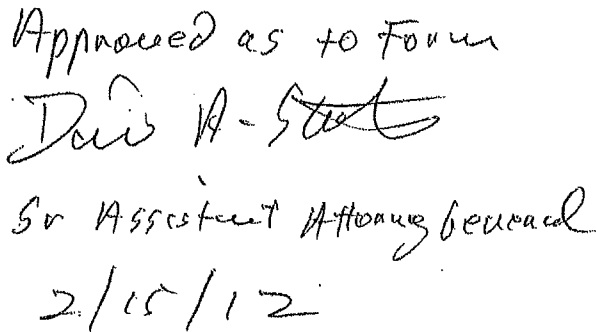 Approved as to Form
David A.
Sr Assistant Attorney General
2/15/12